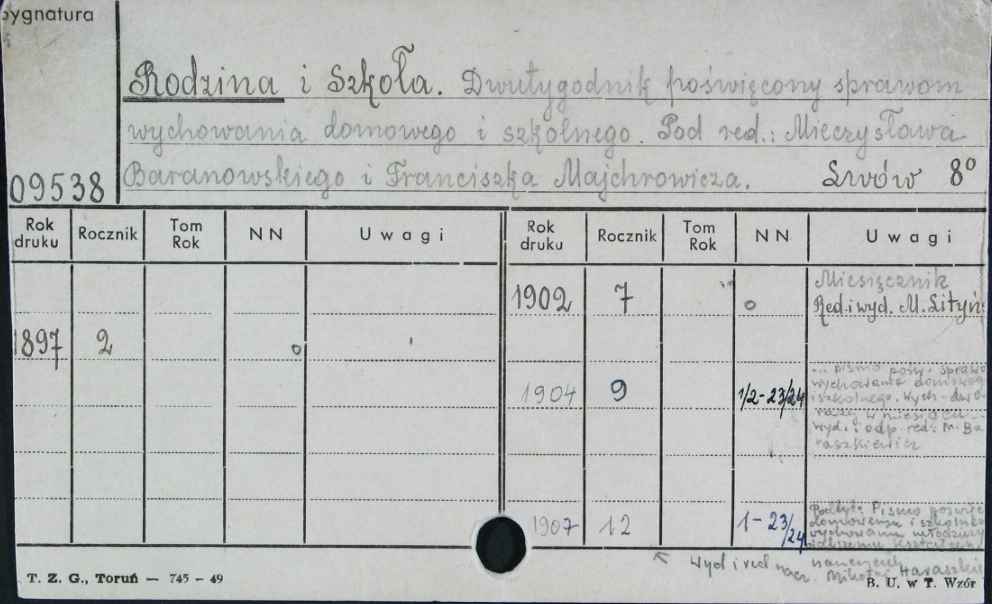 Sygnatura
Rodzina i Szkoła. Dwutygodnik poświęcony sprawom
wychowania domowego i szkolnego. Pod red.: Mieczysława
Baranowskiego i Franciszka Majchrowicza. Lwów 8°
09538
Rok druku Rocznik Tom Rok NN Uwagi Rok druku Rocznik Tom Rok NN Uwagi
Miesięcznik
1902 7 o Red. i wyd. M. Lityń
1897 2 o
... pismo pośw. sprawo
1904 9 1/2-23/24 wychowania domoweg
i szkolnego. Wych. dwa
razy w miesiącu...
wyd. i odp. red. M. Ba
raszkiewicz
1907 12 1-23/24 Podtyt: Pismo poświęc
domowemu i szkolne
wychowaniu młodzieży
Wyd i red nauczyciel
Mikołaj Haraszkie
T. Z. G., Toruń — 745 - 49
B. U. w T. Wzór